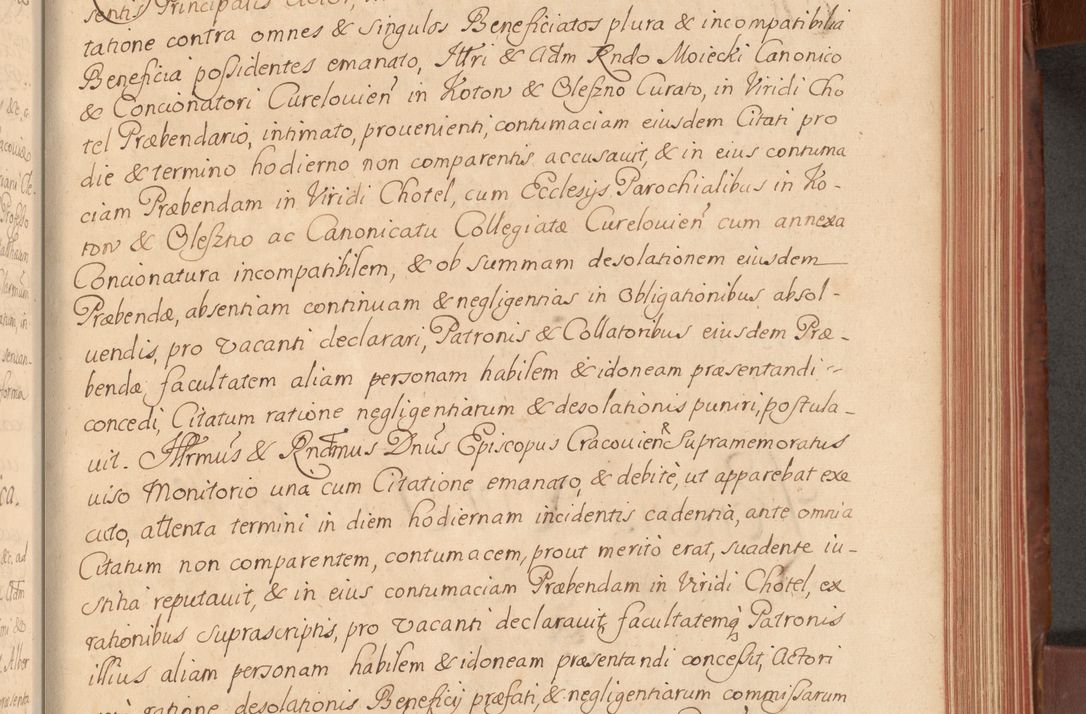 sentis Principalis Actor,
tatione contra omnes & singulos Beneficiatos plura & incompatibilia
Beneficia possidentes emanato, Illri & Adm Rndo Moiecki Canonico
& Concionatori Curelouien̄ in Kotow & Oleszno Curato, in Viridi Cho
tel Præbendario, intimato, prouenienti, contumaciam eiusdem Citati pro
die & termino hodierno non comparentis accusauit, & in eius contuma
ciam Præbendam in Viridi Chotel, cum Ecclesijs Parochialibus in Ko-
tow & Oleszno ac Canonicatu Collegiatæ Curelouien̄ cum annexa
Concionatura incompatibilem, & ob summam desolationem eiusdem
Præbendæ, absentiam continuam & negligentias in Obligationibus absol-
uendis, pro vacanti declarari, Patronis & Collatoribus eiusdem Præ-
bendæ facultatem aliam personam habilem & idoneam præsentandi
concedi, Citatum ratione negligentiarum & desolationis puniri, postula-
uit. Illrmus & Rndmus Dnus Episcopus Cracouien̄ Supramemoratus
uiso Monitorio una cum Citatione emanato, & debitè, ut apparebat exe
cuto, attenta termini in diem hodiernam incidentis cadentia, ante omnia
Citatum non comparentem, contumacem, prout meritò erat, suadente iu-
stitia reputauit, & in eius contumaciam Præbendam in Viridi Chotel, ex
rationibus suprascriptis, pro vacanti declarauit, facultatemq̃ Patronis
illius aliam personam habilem & idoneam præsentandi concessit, Actori
ratione desolationis Beneficij præfati, & negligentiarum commissarum